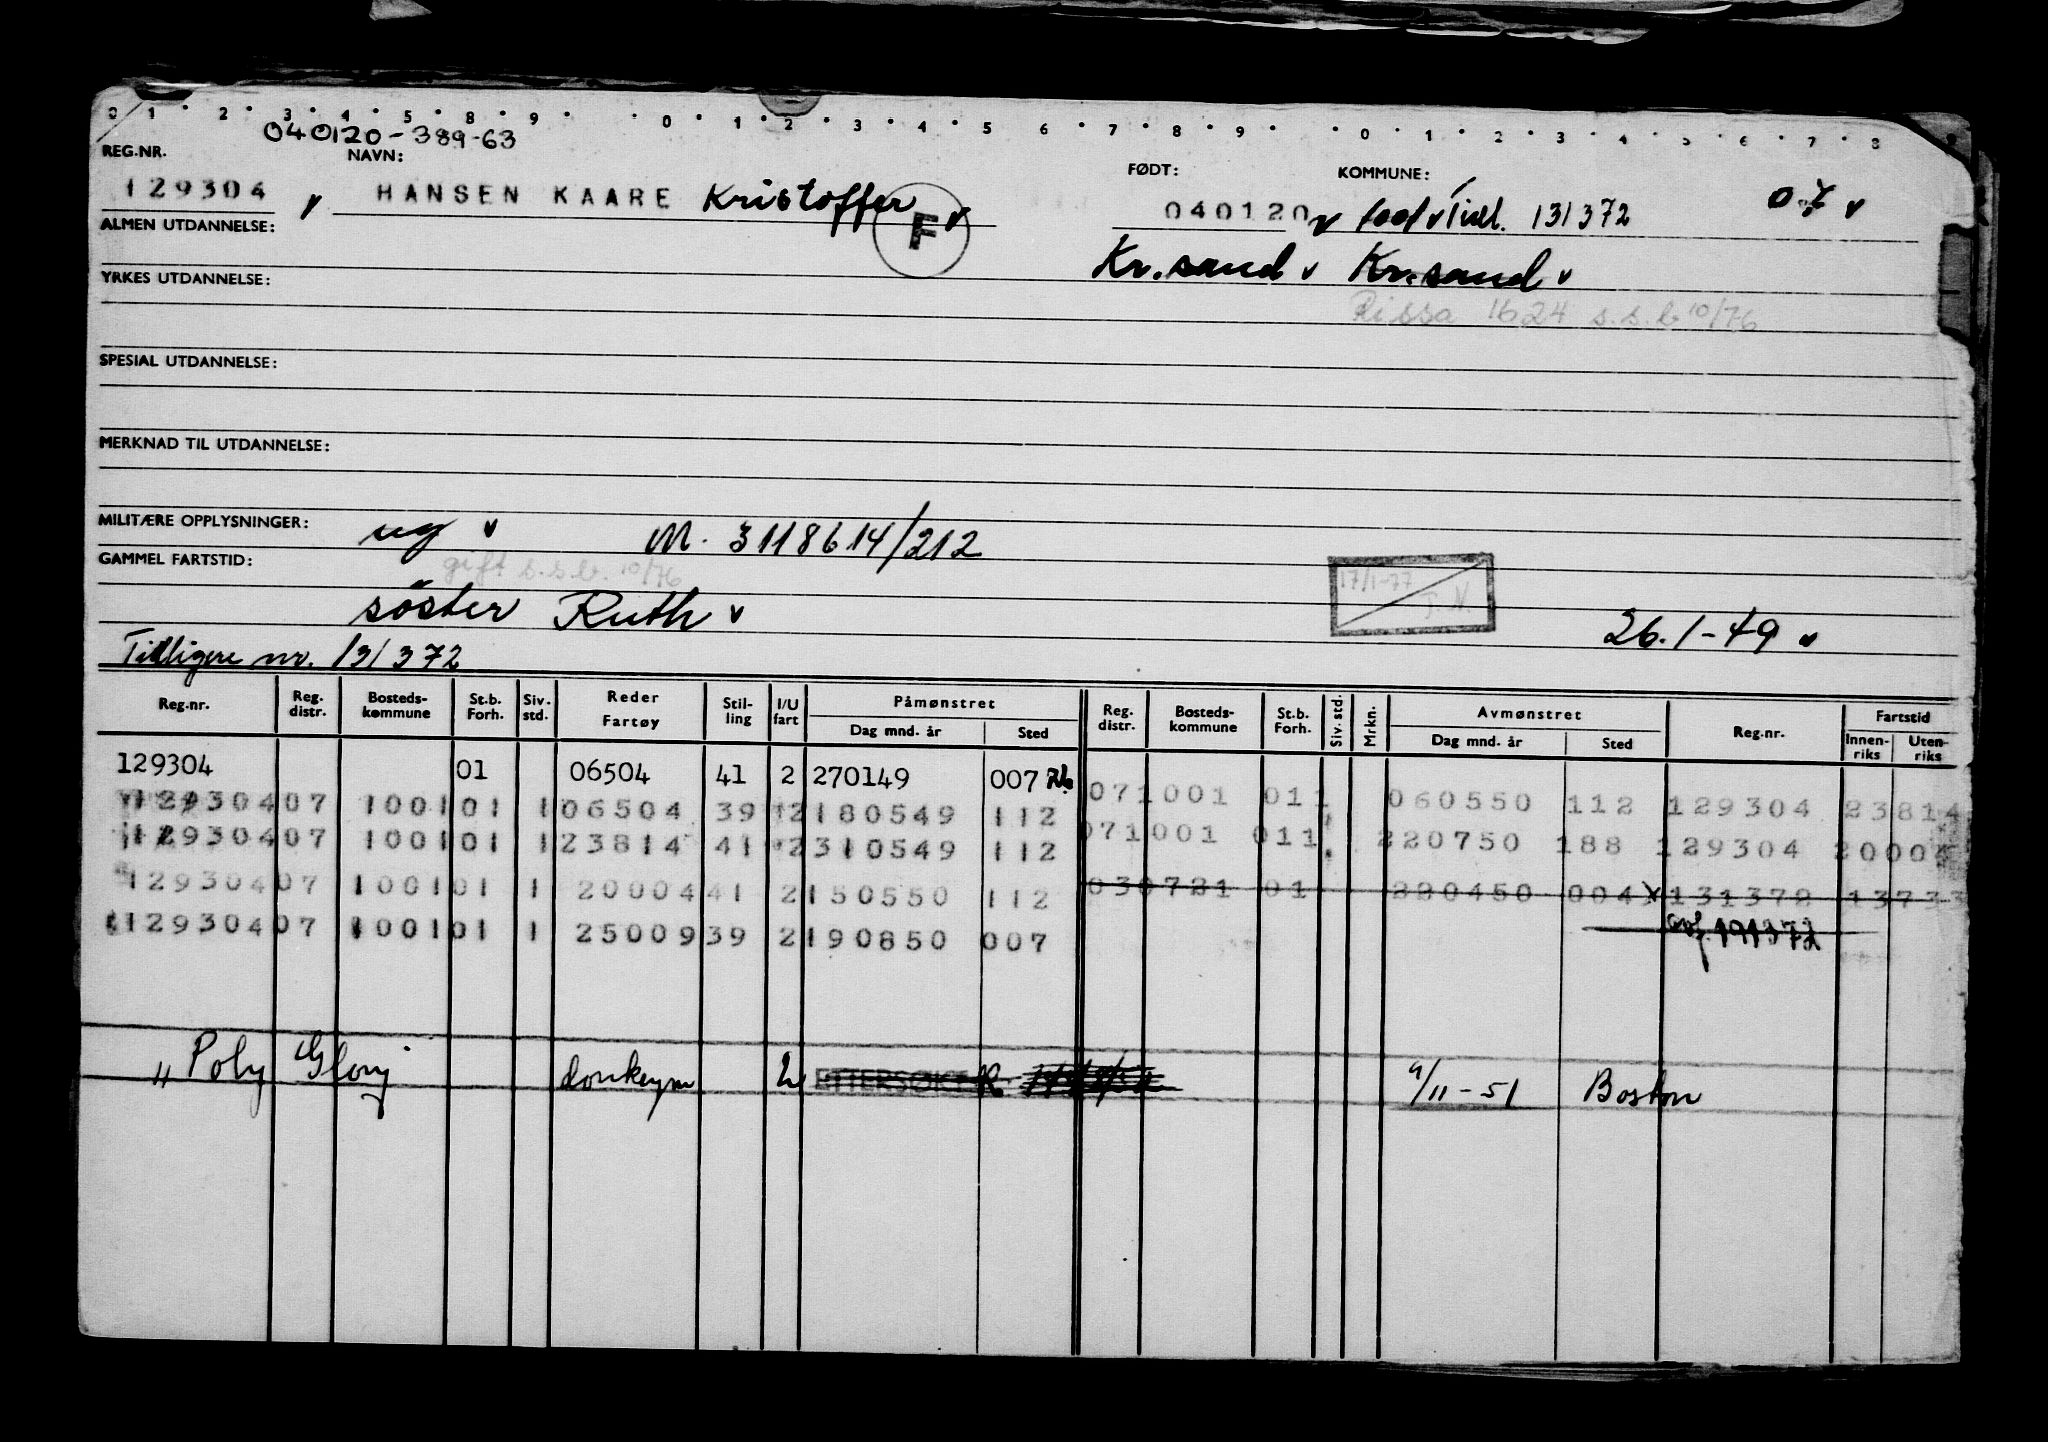 0 1 2 3 4 5 8 9 0 1 2 3 4 5 6 7 8 9 0 1 2 3 4 5 6 7 8 9
040120-389-63
REG.NR. NAVN: FØDT: KOMMUNE:
129304 v HANSEN KAARE Kristoffer v F 040120 v 131372 v
ALMEN UTDANNELSE:
Kr.sand v Kr.sand v
YRKES UTDANNELSE:
Rissa 1624 s.s.b 10/76
SPESIAL UTDANNELSE:
MERKNAD TIL UTDANNELSE:
MILITÆRE OPPLYSNINGER: ug v M. 3118614/212
GAMMEL FARTSTID: gift s.s.b. 10/76
17/1-77
söster Ruth v 26.1-49 v
Tidligere nr. 131372
Reg.nr. Reg. distr. Bosteds-kommune St.b. Forh. Siv. std. Reder Fartøy Stil-ling I/U fart Påmønstret Dag mnd. år Sted Reg. distr. Bosteds-kommune St.b. Forh. Siv. std. Mrkn. Avmønstret Dag mnd. år Sted Reg.nr. Fartstid Innen-riks Uten-riks
129304 01 06504 41 2 270149 007
129304 07 1001 01 1 06504 39 2 180549 112 07 1001 01 1 060550 112 129304 23814
129304 07 1001 01 1 23814 41 2 310549 112 07 1001 01 1 220750 188 129304 20004
129304 07 1001 01 1 20004 41 2 150550 112 030721 01 220450 004 131372 13733
129304 07 1001 01 1 25009 39 2 190850 007 131372
" Poly Glory donkeym 2 ETTERSØKES 9/11-51 Boston